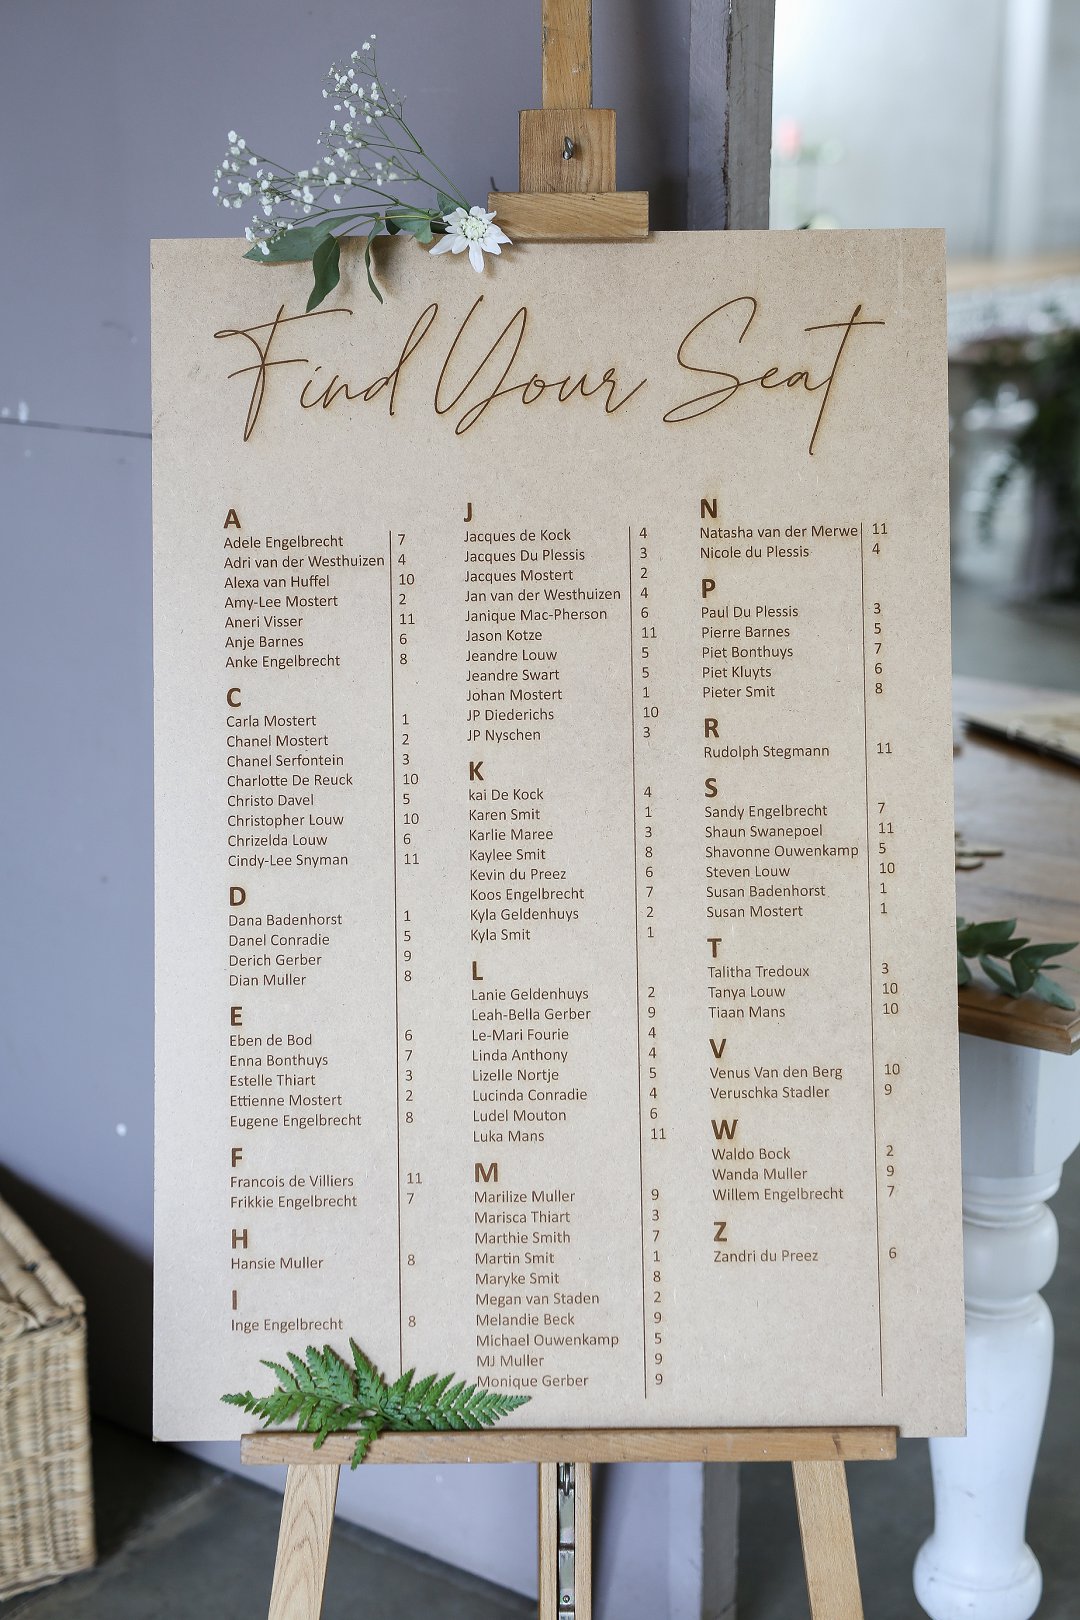 Find Your Seat
A
Adele Engelbrecht 7
Adri van der Westhuizen 4
Alexa van Huffel 10
Amy-Lee Mostert 2
Aneri Visser 11
Anje Barnes 6
Anke Engelbrecht 8
C
Carla Mostert 1
Chanel Mostert 2
Chanel Serfontein 3
Charlotte De Reuck 10
Christo Davel 5
Christopher Louw 10
Chrizelda Louw 6
Cindy-Lee Snyman 11
D
Dana Badenhorst 1
Danel Conradie 5
Derich Gerber 9
Dian Muller 8
E
Eben de Bod 6
Enna Bonthuys 7
Estelle Thiart 3
Ettienne Mostert 2
Eugene Engelbrecht 8
F
Francois de Villiers 11
Frikkie Engelbrecht 7
H
Hansie Muller 8
I
Inge Engelbrecht 8
J
Jacques de Kock 4
Jacques Du Plessis 3
Jacques Mostert 2
Jan van der Westhuizen 4
Janique Mac-Pherson 6
Jason Kotze 11
Jeandre Louw 5
Jeandre Swart 5
Johan Mostert 1
JP Diederichs 10
JP Nyschen 3
K
kai De Kock 4
Karen Smit 1
Karlie Maree 3
Kaylee Smit 8
Kevin du Preez 6
Koos Engelbrecht 7
Kyla Geldenhuys 2
Kyla Smit 1
L
Lanie Geldenhuys 2
Leah-Bella Gerber 9
Le-Mari Fourie 4
Linda Anthony 4
Lizelle Nortje 5
Lucinda Conradie 4
Ludel Mouton 6
Luka Mans 11
M
Marilize Muller 9
Marisca Thiart 3
Marthie Smith 7
Martin Smit 1
Maryke Smit 8
Megan van Staden 2
Melandie Beck 9
Michael Ouwenkamp 5
MJ Muller 9
Monique Gerber 9
N
Natasha van der Merwe 11
Nicole du Plessis 4
P
Paul Du Plessis 3
Pierre Barnes 5
Piet Bonthuys 7
Piet Kluyts 6
Pieter Smit 8
R
Rudolph Stegmann 11
S
Sandy Engelbrecht 7
Shaun Swanepoel 11
Shavonne Ouwenkamp 5
Steven Louw 10
Susan Badenhorst 1
Susan Mostert 1
T
Talitha Tredoux 3
Tanya Louw 10
Tiaan Mans 10
V
Venus Van den Berg 10
Veruschka Stadler 9
W
Waldo Bock 2
Wanda Muller 9
Willem Engelbrecht 7
Z
Zandri du Preez 6